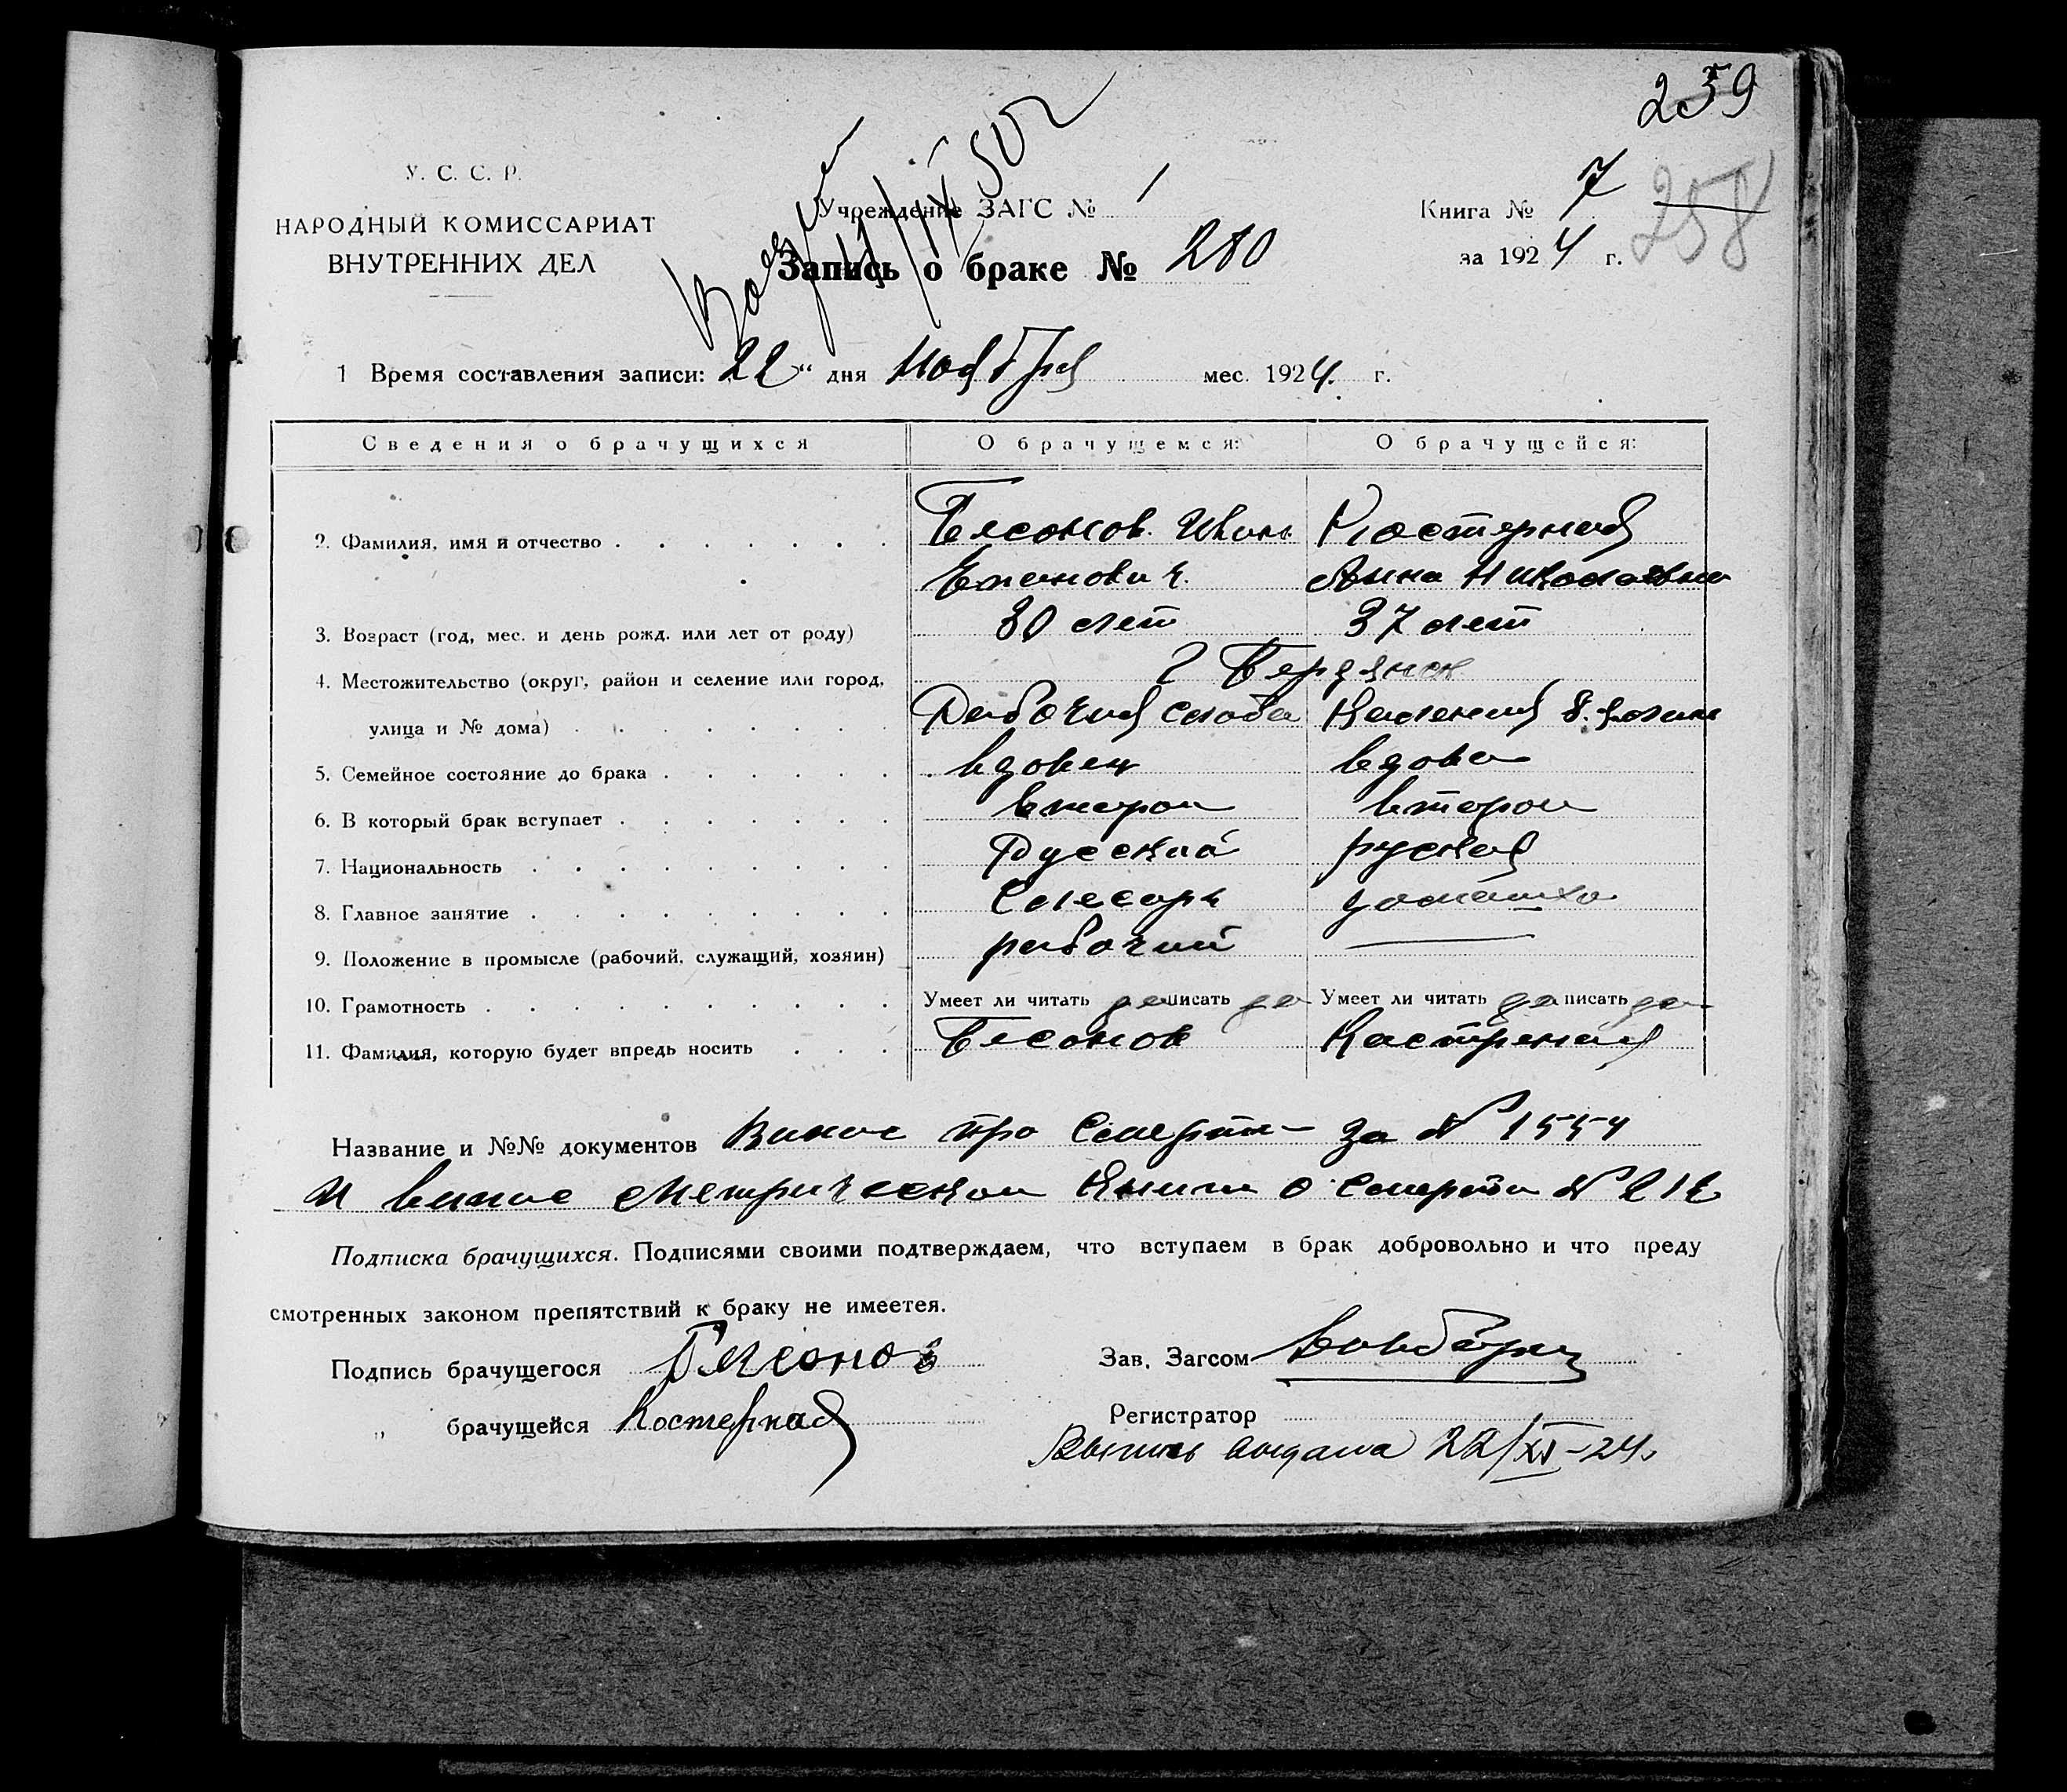 239
258
У. С. С. Р.
НАРОДНЫЙ КОМИССАРИАТ
ВНУТРЕННИХ ДЕЛ
Учреждение ЗАГС № 1
Книга № 7
за 1924 г.
Запись о браке № 280
1 Время составления записи: „22“ дня Ноября мес. 1924. г.
Сведения о брачущихся О брачущемся: О брачущейся:
2. Фамилия, имя и отчество Бесонов. Иван Костерная
Анна Николаевна
3. Возраст (год, мес. и день рожд. или лет от роду) 30 лет 37 лет
4. Местожительство (округ, район и селение или город, г Бердянск
улица и № дома) Рабочая слоб
5. Семейное состояние до брака вдовец вдова
6. В который брак вступает второй второй
7. Национальность Русский руская
8. Главное занятие Слесарь домашхо
9. Положение в промысле (рабочий, служащий, хозяин) рабочий —
10. Грамотность Умеет ли читать да писать да Умеет ли читать да писать да
11. Фамилия, которую будет впредь носить Бесонов Кастреная
Название и №№ документов Випис про Смерть за № 1554
и випис метрической книги о смерти № 212
Подписка брачущихся. Подписями своими подтверждаем, что вступаем в брак добровольно и что преду
смотренных законом препятствий к браку не имеетея.
Подпись брачущегося Бесонов Зав. Загсом
„ брачущейся Костерная Регистратор
Выпись выдана 22/XI–24.